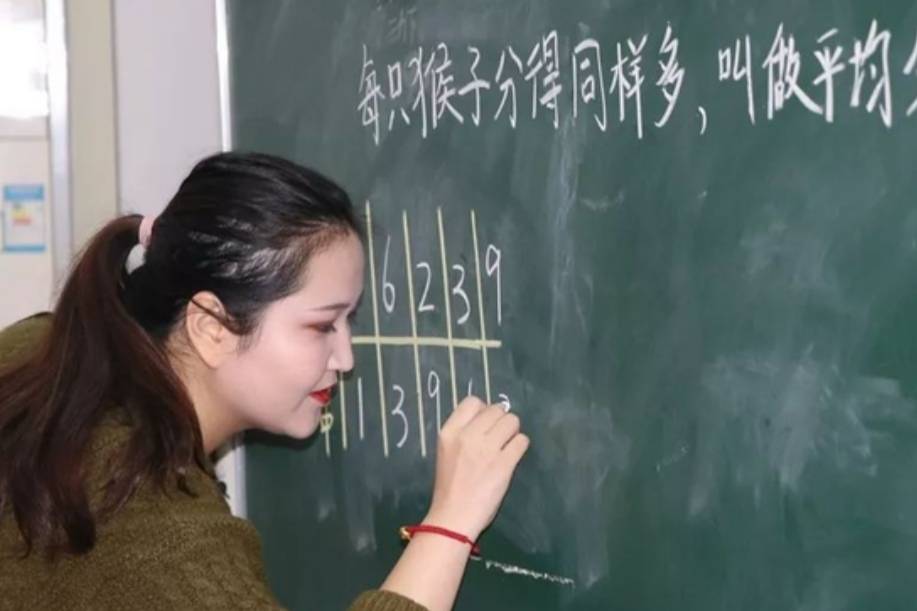 每只猴子分得同样多，叫做平均
6 2 3 9
1 3 9